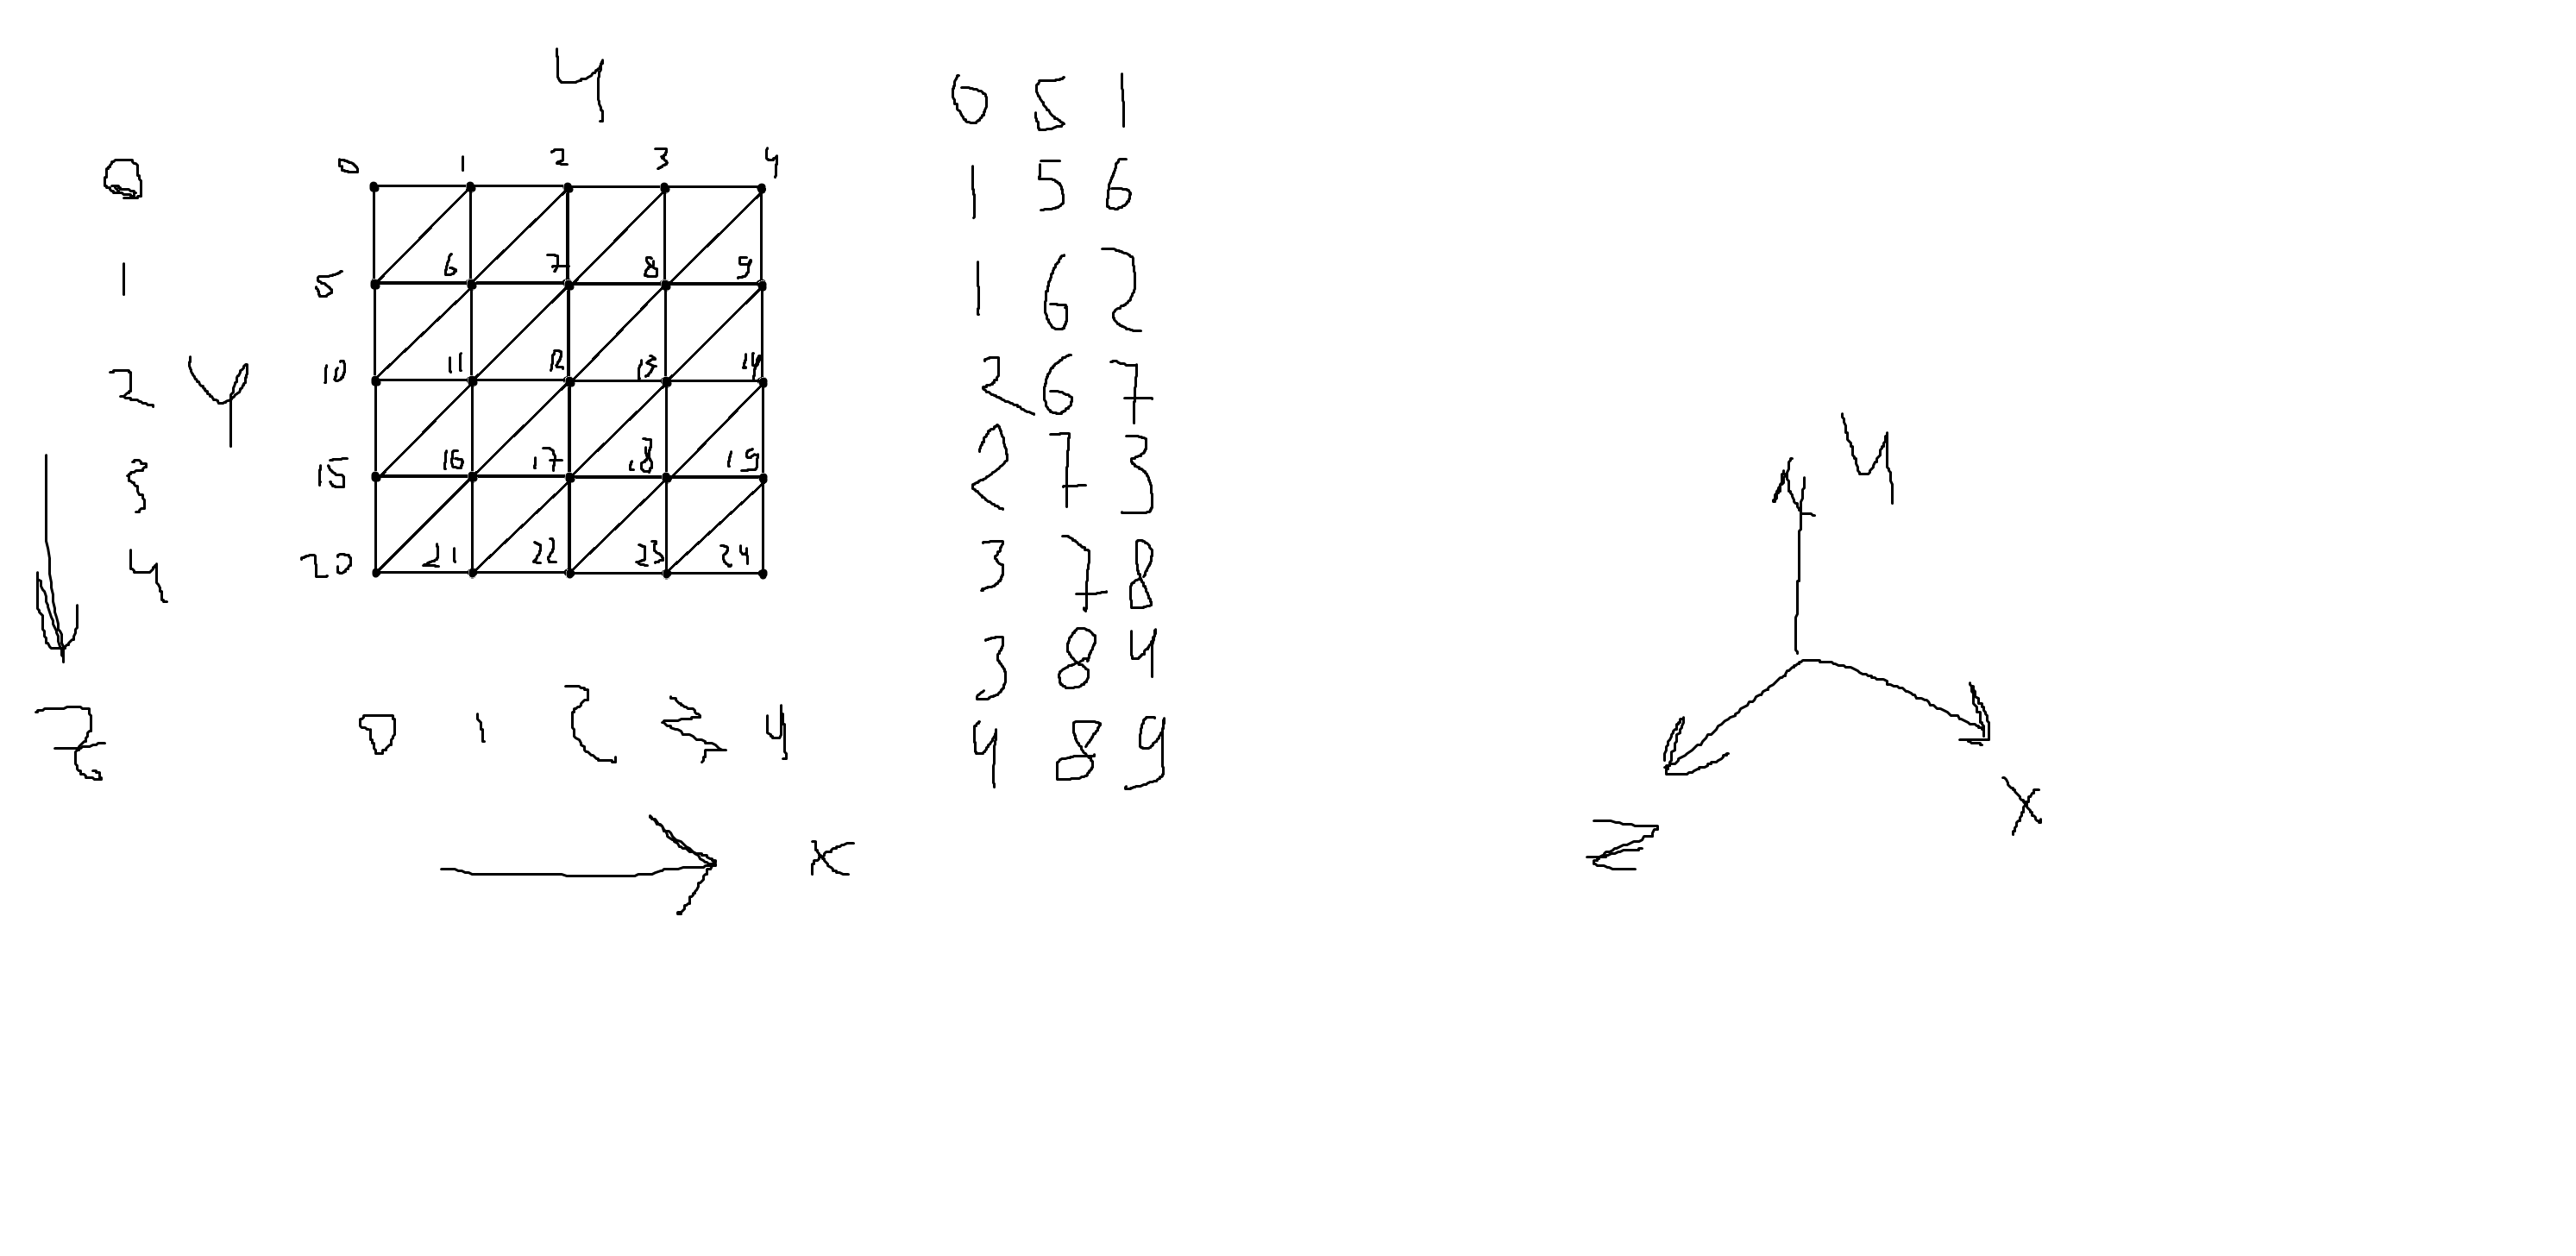 4
0 1 2 3 4
0
6 7 8 9
5
1
11 12 13 14
10
2 y
16 17 18 19
15
3
21 22 23 24
20
4
z
0 1 2 3 4
x
0 5 1
1 5 6
1 6 2
2 6 7
2 7 3
3 7 8
3 8 4
4 8 9
y
z
x